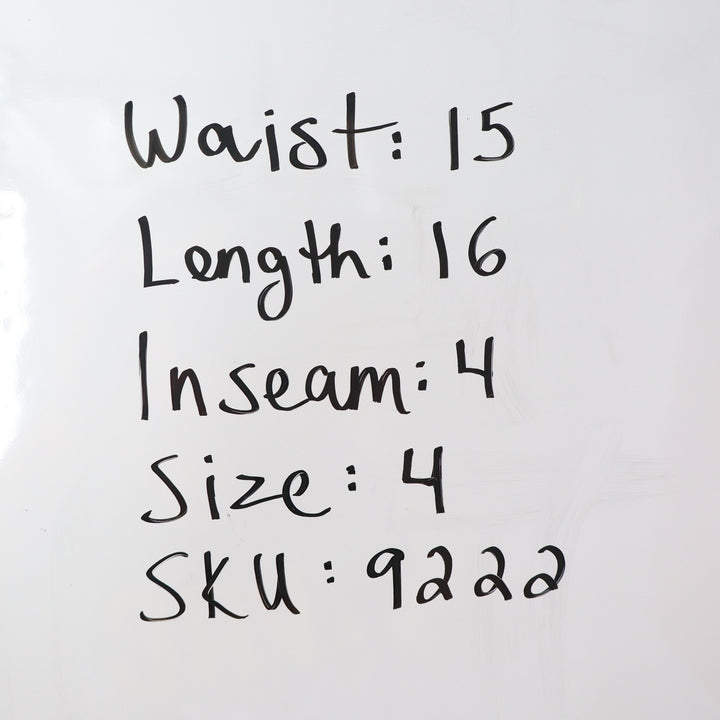 Waist: 15
Length: 16
Inseam: 4
Size: 4
SKU: 9222